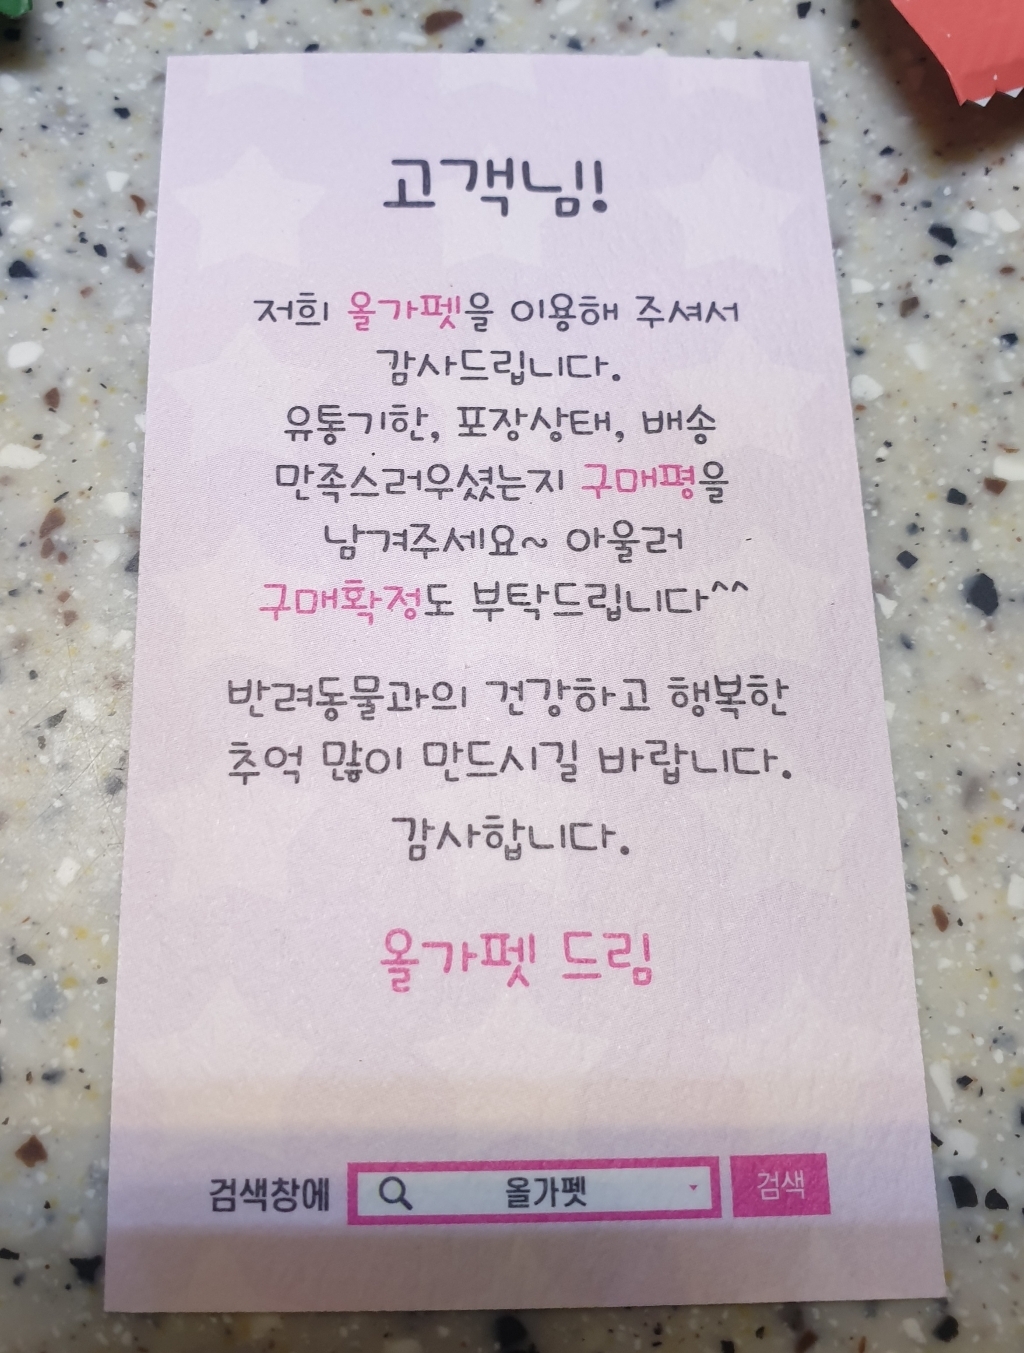 고객님!
저희 올가펫을 이용해 주셔서
감사드립니다.
유통기한, 포장상태, 배송
만족스러우셨는지 구매평을
남겨주세요~ 아울러
구매확정도 부탁드립니다^^
반려동물과의 건강하고 행복한
추억 많이 만드시길 바랍니다.
감사합니다.
올가펫 드림
검색창에 올가펫 검색